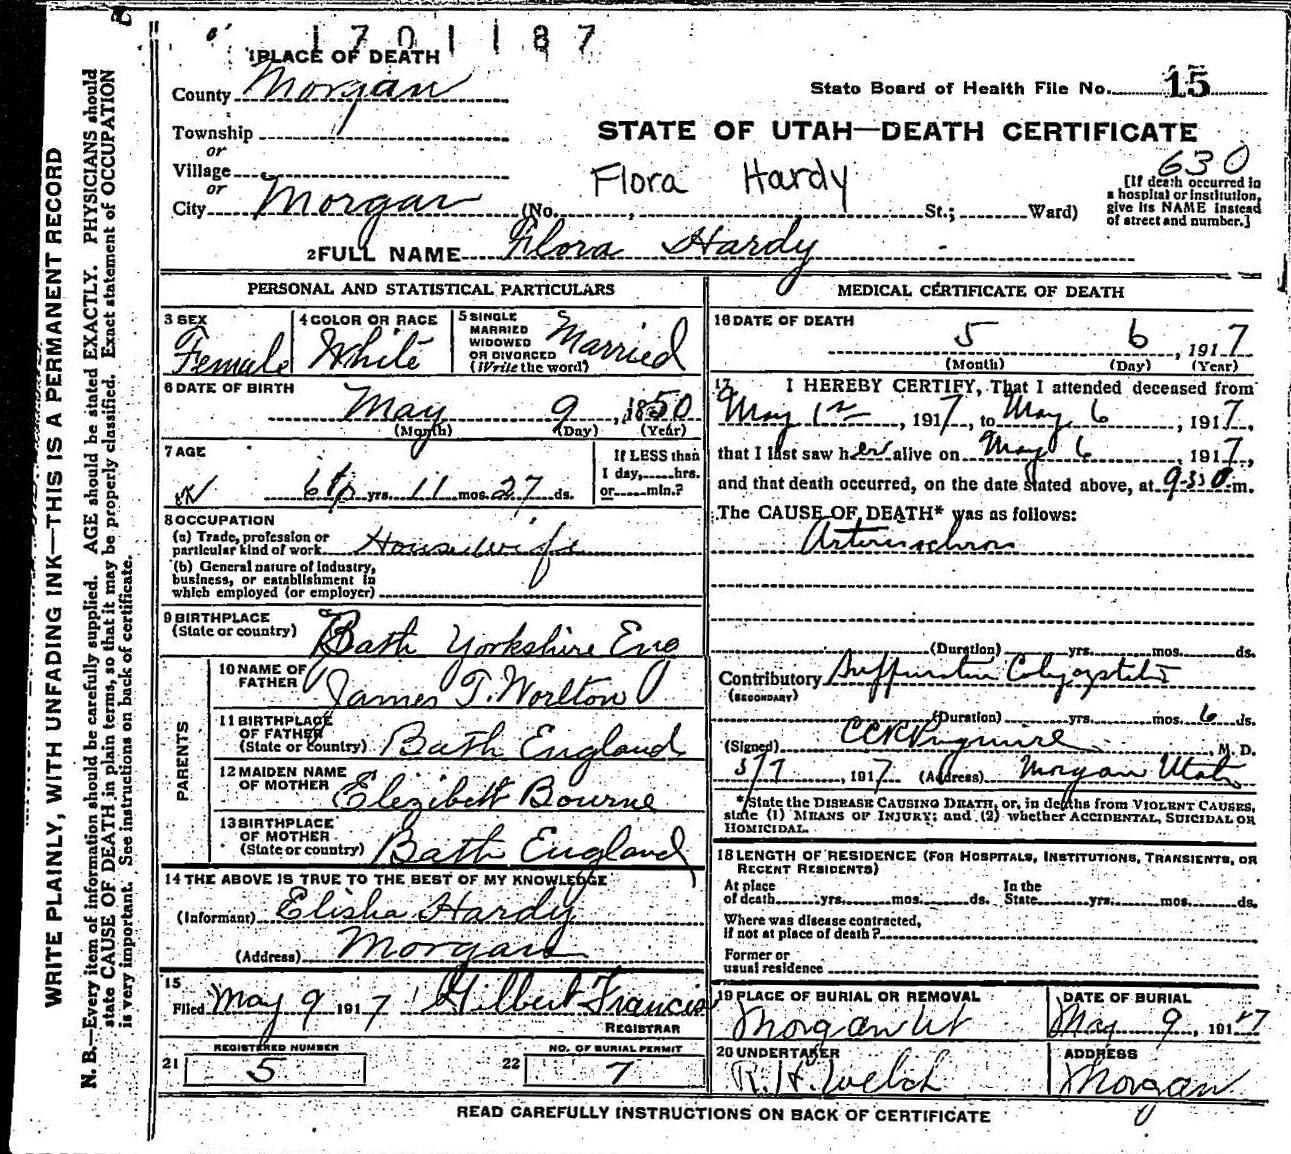 1701187
1 PLACE OF DEATH
County Morgan
State Board of Health File No. 15
Township
or
STATE OF UTAH—DEATH CERTIFICATE
Village
or
Flora Hardy
630
City Morgan (No. , St.; Ward)
[If death occurred in
a hospital or institution,
give its NAME instead
of street and number.]
2 FULL NAME Flora Hardy
PERSONAL AND STATISTICAL PARTICULARS
3 SEX
Female
4 COLOR OR RACE
White
5 SINGLE
MARRIED
WIDOWED
OR DIVORCED
(Write the word)
Married
6 DATE OF BIRTH
May 9, 1850
(Month) (Day) (Year)
7 AGE
yrs. 11 mos. 27 ds.
If LESS than
1 day, hrs.
or min.?
8 OCCUPATION
(a) Trade, profession or
particular kind of work Housewife
(b) General nature of industry,
business, or establishment in
which employed (or employer)
9 BIRTHPLACE
(State or country) Bath Yorkshire Eng
PARENTS
10 NAME OF
FATHER James T. Worlton
11 BIRTHPLACE
OF FATHER
(State or country) Bath England
12 MAIDEN NAME
OF MOTHER Elizibett Bourne
13 BIRTHPLACE
OF MOTHER
(State or country) Bath England
14 THE ABOVE IS TRUE TO THE BEST OF MY KNOWLEDGE
(Informant) Elisha Hardy
(Address) Morgan
15
Filed May 9 1917 Gilbert Francis
REGISTRAR
21 REGISTERED NUMBER
5
22 NO. OF BURIAL PERMIT
7
MEDICAL CERTIFICATE OF DEATH
16 DATE OF DEATH
5 6, 1917
(Month) (Day) (Year)
17 I HEREBY CERTIFY, That I attended deceased from
May 1st, 1917, to May 6, 1917,
that I last saw her alive on May 6, 1917,
and that death occurred, on the date stated above, at 9-30 m.
The CAUSE OF DEATH* was as follows:
(Duration) yrs. mos. ds.
Contributory
(SECONDARY)
(Duration) yrs. mos. 6 ds.
(Signed) M. D.
5/7, 1917 (Address) Morgan Utah
*State the DISEASE CAUSING DEATH, or, in deaths from VIOLENT CAUSES,
state (1) MEANS OF INJURY; and (2) whether ACCIDENTAL, SUICIDAL OR
HOMICIDAL.
18 LENGTH OF RESIDENCE (FOR HOSPITALS, INSTITUTIONS, TRANSIENTS, OR
RECENT RESIDENTS)
At place
of death yrs. mos. ds.
In the
State yrs. mos. ds.
Where was disease contracted,
if not at place of death?
Former or
usual residence
19 PLACE OF BURIAL OR REMOVAL
Morgan Ut
DATE OF BURIAL
May 9, 1917
20 UNDERTAKER
R. H. Welch
ADDRESS
Morgan
READ CAREFULLY INSTRUCTIONS ON BACK OF CERTIFICATE
WRITE PLAINLY, WITH UNFADING INK—THIS IS A PERMANENT RECORD
N. B.—Every item of information should be carefully supplied. AGE should be stated EXACTLY. PHYSICIANS should
state CAUSE OF DEATH in plain terms, so that it may be properly classified. Exact statement of OCCUPATION
is very important. See instructions on back of certificate.